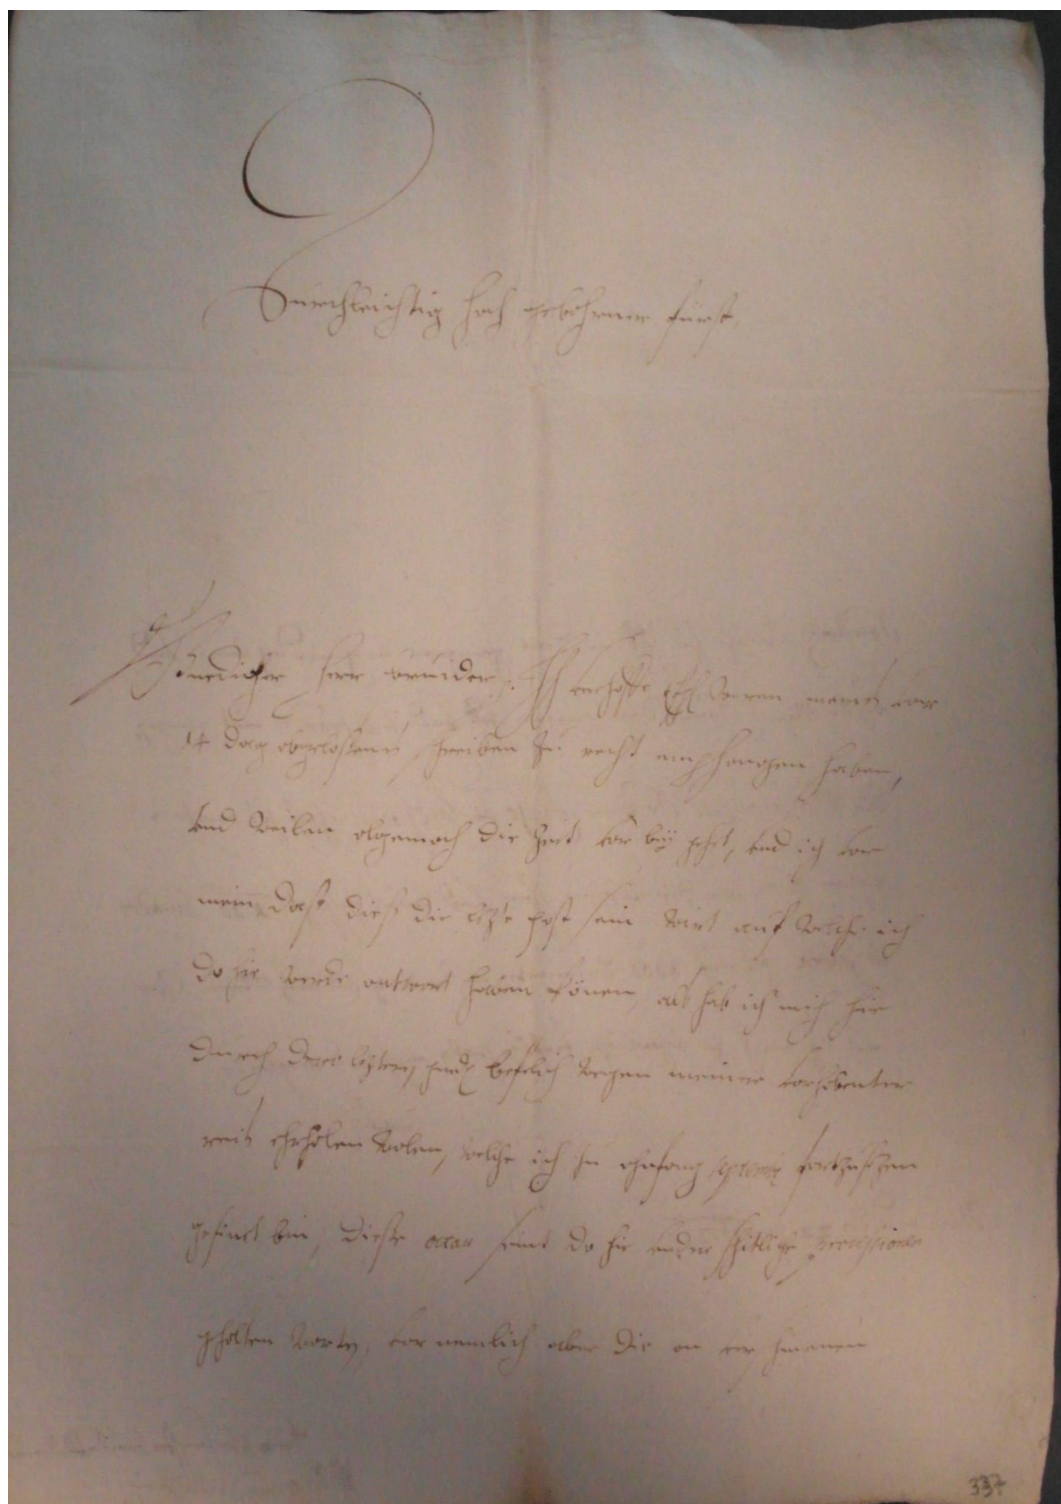 Durchleichtig hoch gebohrner fürst,
Gnedicher herr brueder. Ich verhoffe werden mein vor
14 dag abgelassenes schreiben zu recht emphangen haben,
vnd weilen algemach die Zeit vor bÿ gehet, vnd ich ver
mein, dass diess die letzte post sein wirt auf welche ich
do hie werde antwort haben könen, als hab ich mich hie
durch dero letzten befelich wegen meiner vorhabenter
reis ehrholen wolen, welche ich zu ahnfang fortzusezen
gesint bin, diesse octav seint do hie underschitliche processionen
gehalten worden, vor nemlich aber die an
337